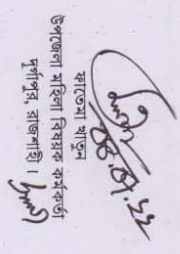 ফাতেমা খাতুন
উপজেলা মহিলা বিষয়ক কর্মকর্তা
দুর্গাপুর, রাজশাহী।